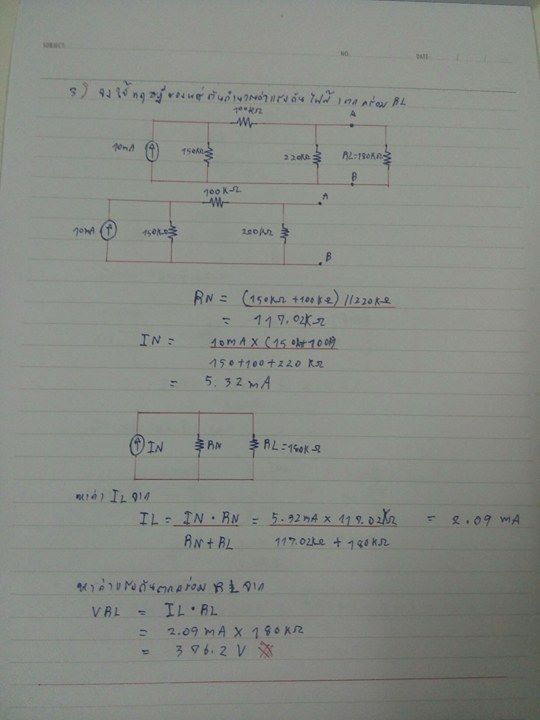 SUBJECT:
NO.
DATE
3) จงใช้ทฤษฎีของ คำนวณค่าแรงดันไฟฟ้า ตกคร่อม RL
100KΩ
A
10mA
150KΩ
220KΩ
RL=180KΩ
B
100KΩ
A
10mA
150KΩ
220KΩ
B
RN = (150KΩ+100KΩ)//220KΩ
= 117.02KΩ
IN = 10mA X (150k+100k)
150+100+220 KΩ
= 5.32 mA
IN
RN
RL=180KΩ
หาค่า IL จาก
IL = IN · RN = 5.32mA X 117.02KΩ = 2.09 mA
RN+RL 117.02KΩ + 180KΩ
หาค่าแรงดันตกคร่อม RL จาก
VRL = IL · RL
= 2.09 mA X 180KΩ
= 376.2 V